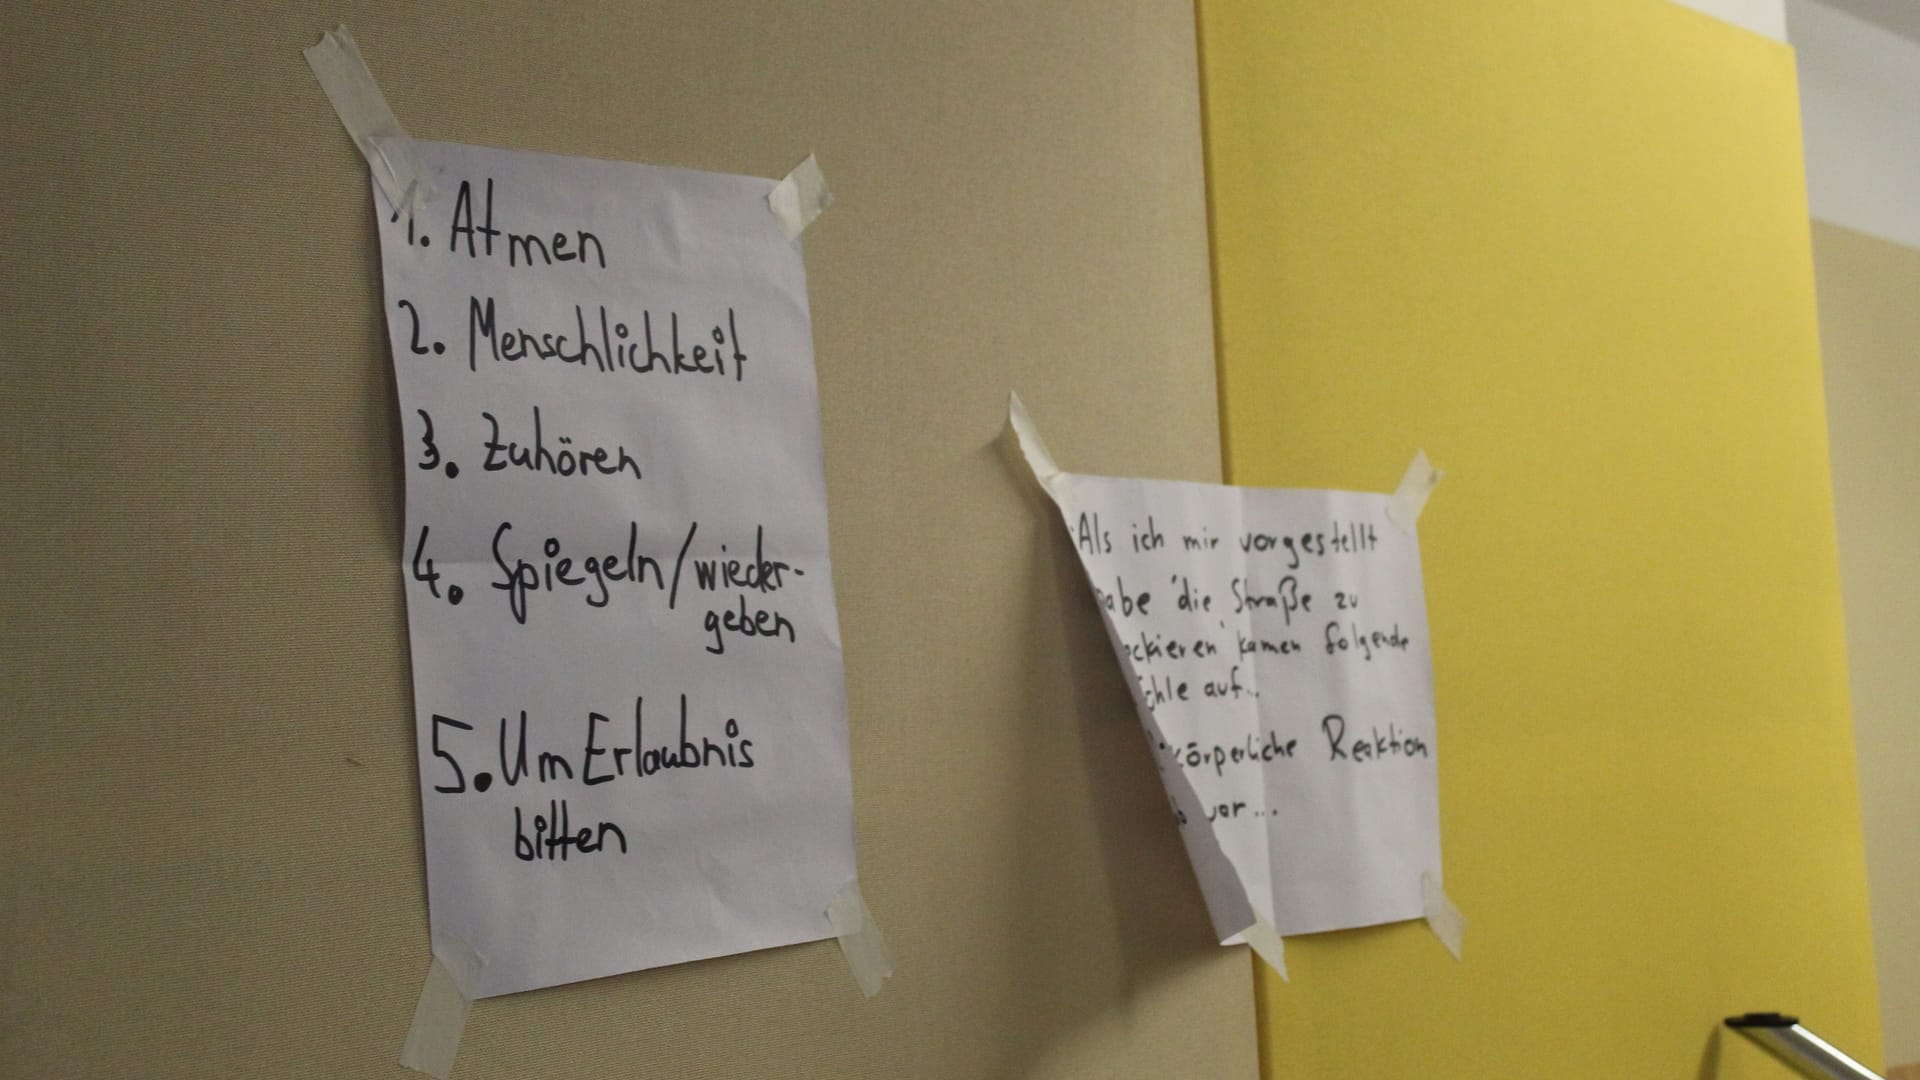 1. Atmen
2. Menschlichkeit
3. Zuhören
4. Spiegeln/wieder-
geben
5. Um Erlaubnis
bitten
Als ich mir vorgestellt
die Straße zu
kamen folgende
auf...
körperliche Reaktion
vor...